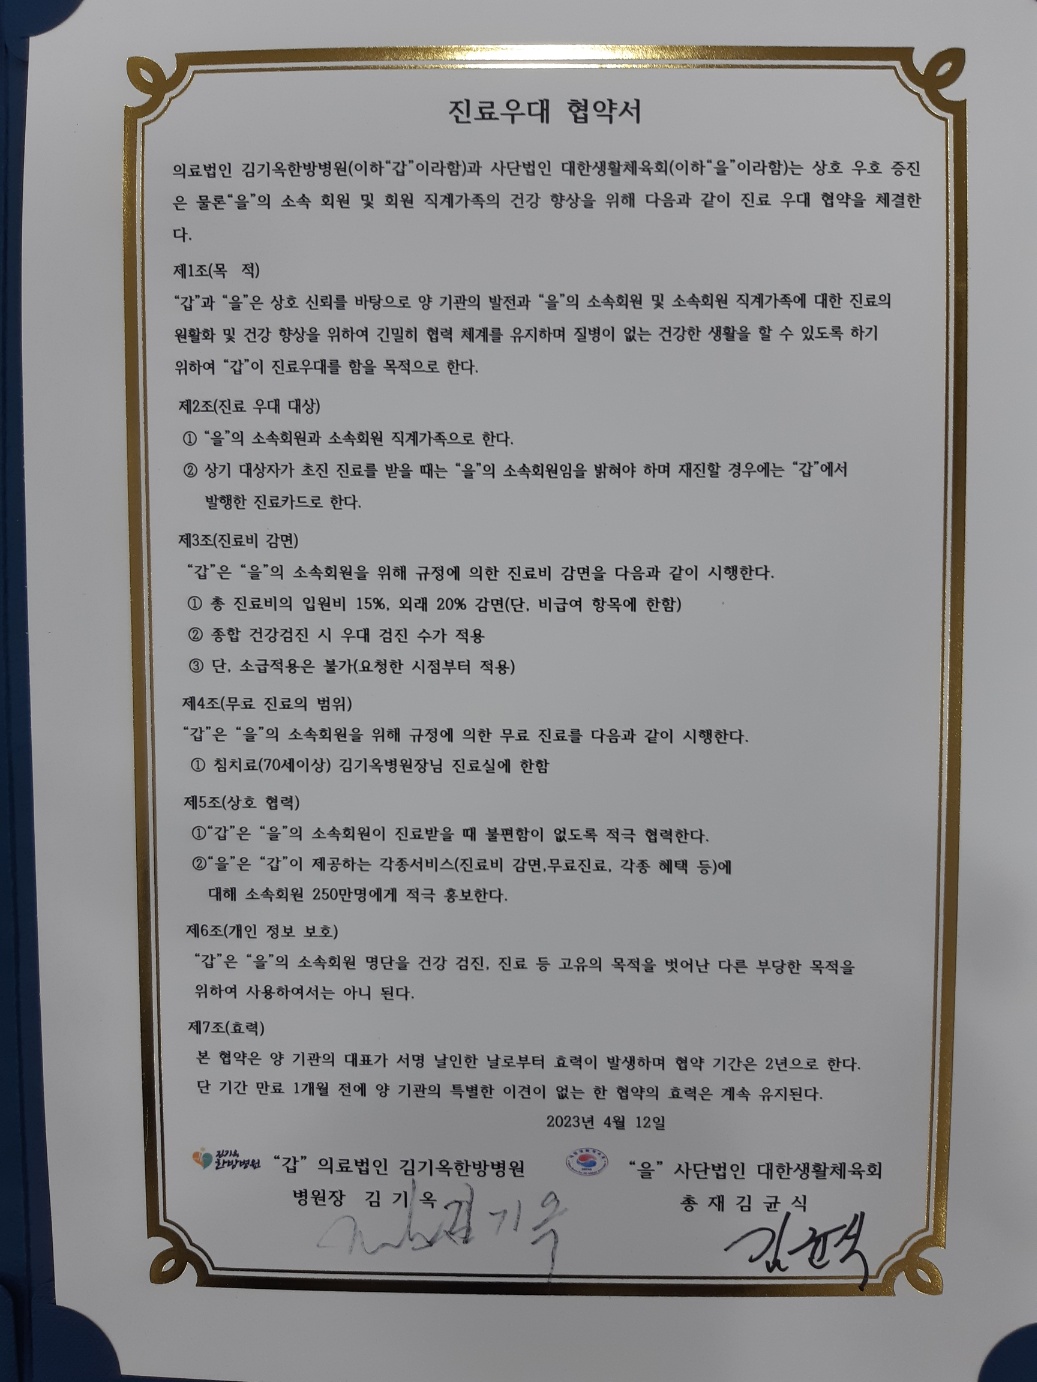 진료우대 협약서
의료법인 김기옥한방병원(이하“갑”이라함)과 사단법인 대한생활체육회(이하“을”이라함)는 상호 우호 증진
은 물론“을”의 소속 회원 및 회원 직계가족의 건강 향상을 위해 다음과 같이 진료 우대 협약을 체결한
다.
제1조(목 적)
“갑”과 “을”은 상호 신뢰를 바탕으로 양 기관의 발전과 “을”의 소속회원 및 소속회원 직계가족에 대한 진료의
원활화 및 건강 향상을 위하여 긴밀히 협력 체계를 유지하며 질병이 없는 건강한 생활을 할 수 있도록 하기
위하여 “갑”이 진료우대를 함을 목적으로 한다.
제2조(진료 우대 대상)
① “을”의 소속회원과 소속회원 직계가족으로 한다.
② 상기 대상자가 초진 진료를 받을 때는 “을”의 소속회원임을 밝혀야 하며 재진할 경우에는 “갑”에서
발행한 진료카드로 한다.
제3조(진료비 감면)
“갑”은 “을”의 소속회원을 위해 규정에 의한 진료비 감면을 다음과 같이 시행한다.
① 총 진료비의 입원비 15%, 외래 20% 감면(단, 비급여 항목에 한함)
② 종합 건강검진 시 우대 검진 수가 적용
③ 단, 소급적용은 불가(요청한 시점부터 적용)
제4조(무료 진료의 범위)
“갑”은 “을”의 소속회원을 위해 규정에 의한 무료 진료를 다음과 같이 시행한다.
① 침치료(70세이상) 김기옥병원장님 진료실에 한함
제5조(상호 협력)
①“갑”은 “을”의 소속회원이 진료받을 때 불편함이 없도록 적극 협력한다.
②“을”은 “갑”이 제공하는 각종서비스(진료비 감면,무료진료, 각종 혜택 등)에
대해 소속회원 250만명에게 적극 홍보한다.
제6조(개인 정보 보호)
“갑”은 “을”의 소속회원 명단을 건강 검진, 진료 등 고유의 목적을 벗어난 다른 부당한 목적을
위하여 사용하여서는 아니 된다.
제7조(효력)
본 협약은 양 기관의 대표가 서명 날인한 날로부터 효력이 발생하며 협약 기간은 2년으로 한다.
단 기간 만료 1개월 전에 양 기관의 특별한 이견이 없는 한 협약의 효력은 계속 유지된다.
2023년 4월 12일
김기옥
한방병원
“갑” 의료법인 김기옥한방병원
“을” 사단법인 대한생활체육회
병원장 김 기 옥
총 재 김 균 식
김기옥
김균식